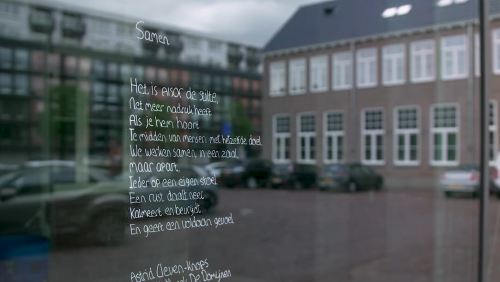 Samen
Het is eisor de stilte,
Net meer nadruk heeft
Als je hem hoort
Te midden van mensen met hetzelfde doel.
We werken samen, in een zaal,
maar apart.
Ieder op een eigen stoel
Een rust daalt neer
Kalmeert en bevrijdt
En geeft een voldaan gevoel.
Astrid Cleven-Knops
De Domijnen